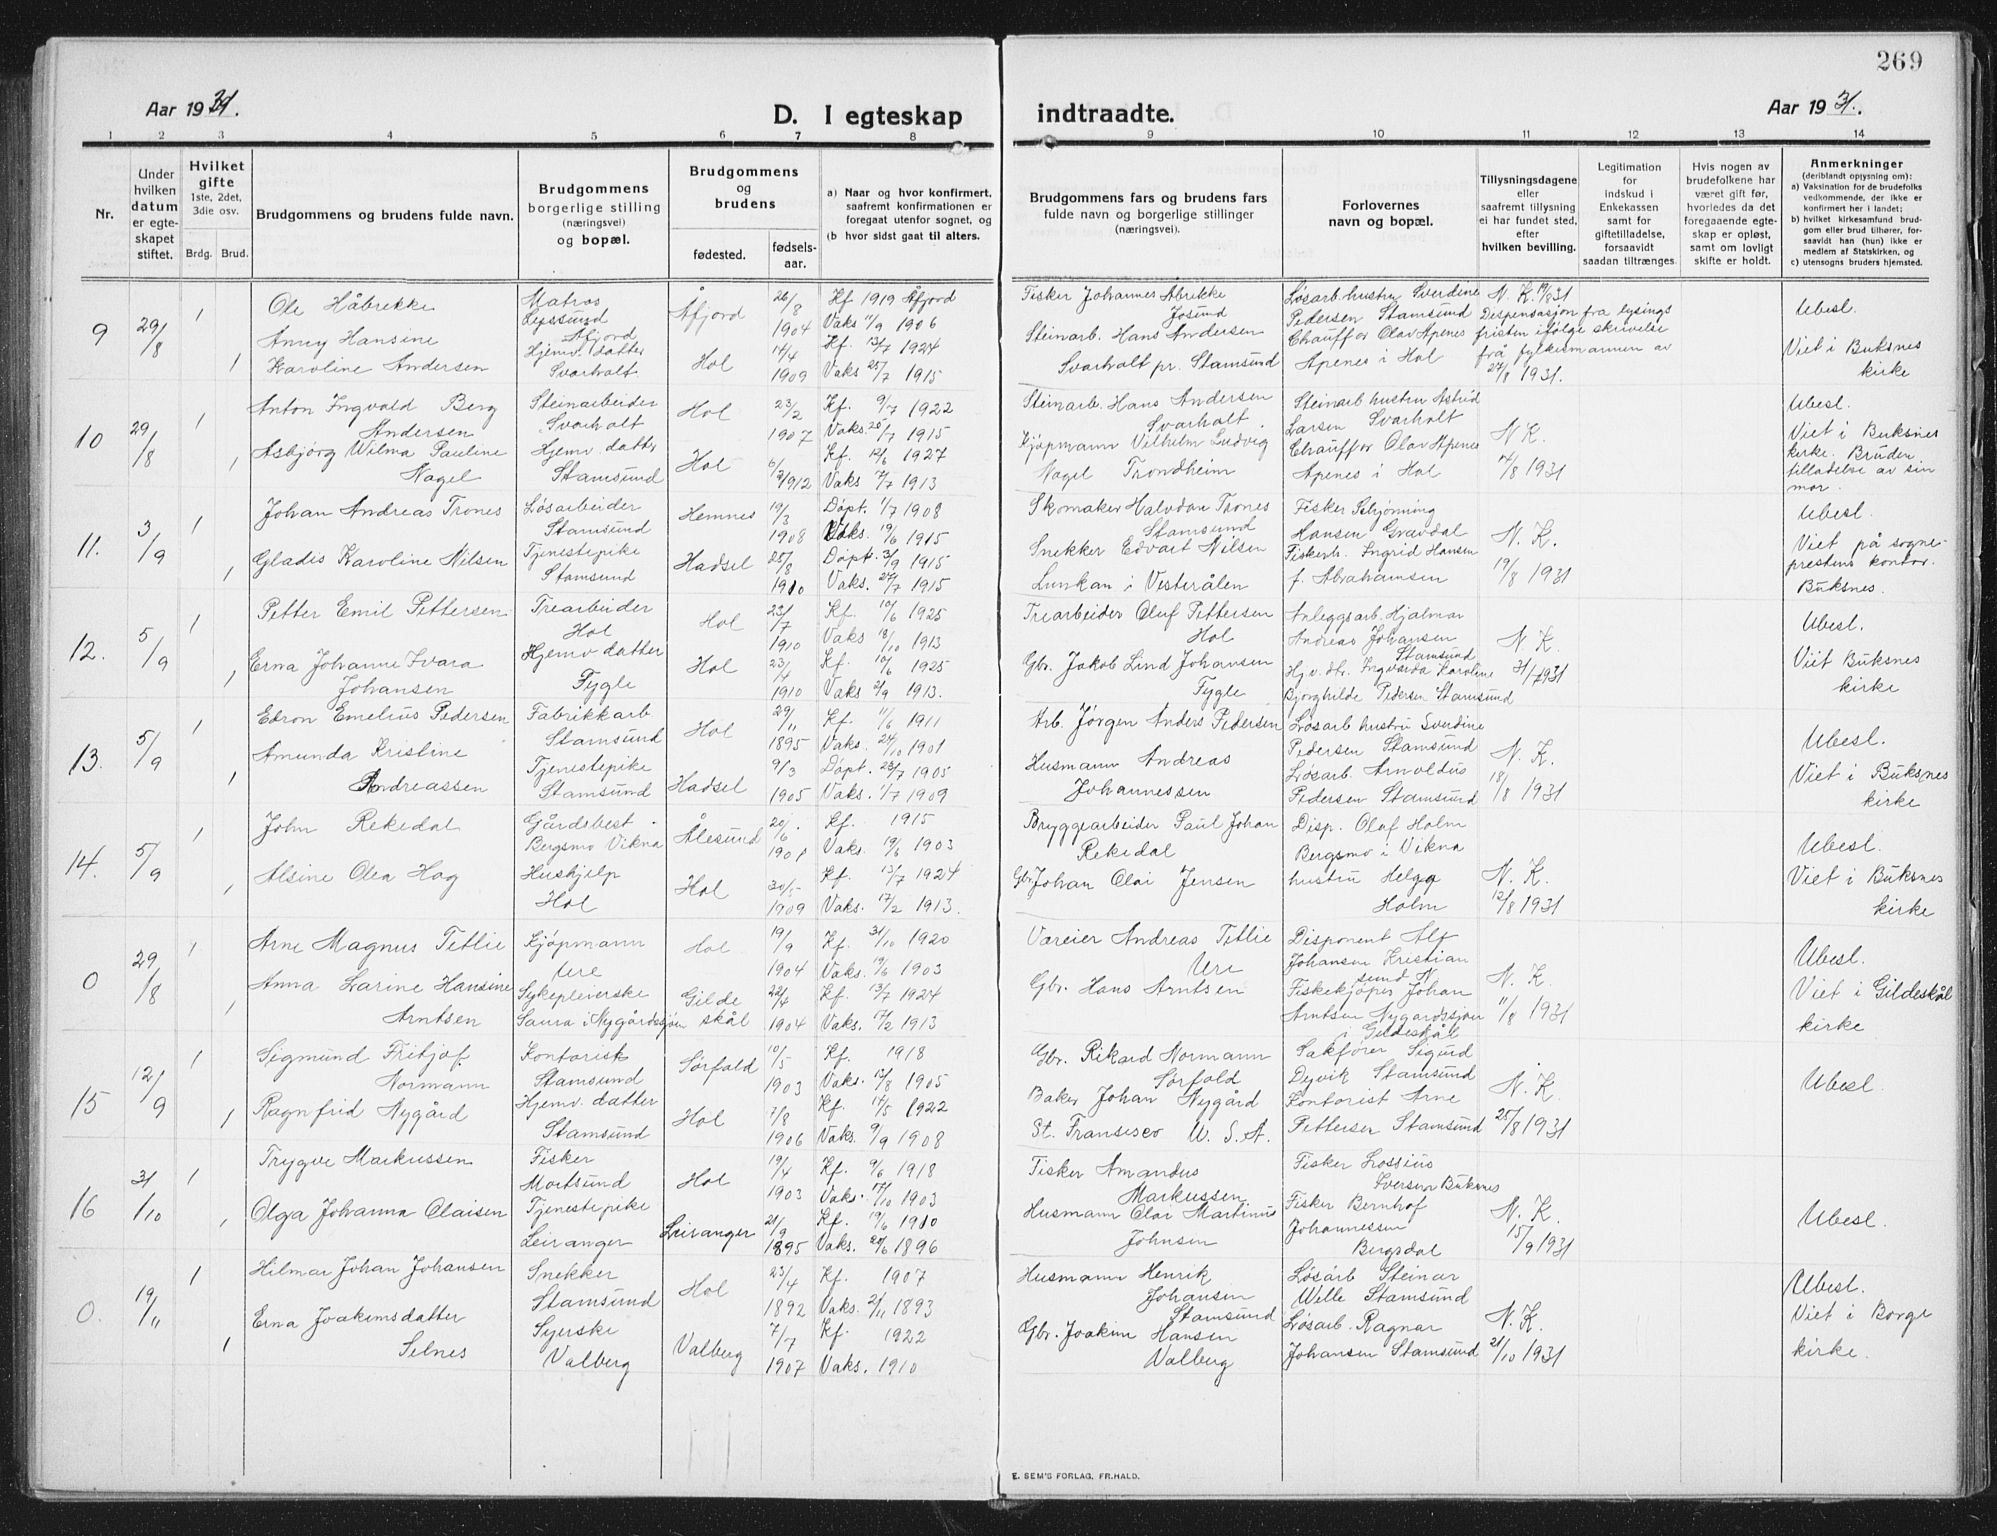 269
Aar 1931.
D. I egteskap
indtraadte.
Aar 1931.
1 2 3 4 5 6 7 8 9 10 11 12 13 14
Nr.
Under hvilken datum er egteskapet stiftet.
Hvilket gifte 1ste, 2det, 3die osv.
Brdg. Brud.
Brudgommens og brudens fulde navn.
Brudgommens borgerlige stilling (næringsvei) og bopæl.
Brudgommens og brudens
fødested.
fødsels-aar.
a) Naar og hvor konfirmert, saafremt konfirmationen er foregaat utenfor sognet, og
(b hvor sidst gaat til alters.
Brudgommens fars og brudens fars fulde navn og borgerlige stillinger (næringsvei).
Forlovernes navn og bopæl.
Tillysningsdagene eller saafremt tillysning ei har fundet sted, efter hvilken bevilling.
Legitimation for indskud i Enkekassen samt for giftetilladelse, forsaavidt saadan tiltrænges.
Hvis nogen av brudefolkene har været gift før, hvorledes da det foregaaende egteskap er opløst, samt om lovligt skifte er holdt.
Anmerkninger
(deriblandt opysning om):
a) Vaksination for de brudefolks vedkommende, der ikke er konfirmert her i landet;
b) hvilket kirkesamfund brudgom eller brud tilhører, forsaavidt han (hun) ikke er medlem af Statskirken, og
c) utensogns bruders hjemsted.
9 29/8 1 Ole Håbrekke Matros Lyssund Åfjord Åfjord 26/8 1904 Kf 1919 Åfjord Vaks 11/9 1906
1 Anny Hansine Karoline Andersen Hjemv. datter Svarholt Hol 14/4 1909 Kf. 13/7 1924 Vaks 25/7 1915
Fisker Johannes Abrekke Josund
Steinarb. Hans Andersen Svarholt pr. Stamsund
Løsarb. hustru Sverdine Pedersen Stamsund
Chauffør Olav Apenes Apenes i Hol
N. K. 19/8 31 Dispensasjon fra lysings fristen ifølge skrivelse frå fylkesmannen av 27/8 1931.
Ubesl.
Viet i Buksnes kirke
10 29/8 1 Anton Ingvald Berg Andersen Steinarbeider Svarholt Hol 23/2 1907 Kf. 9/7 1922 Vaks. 20/7 1915
1 Asbjørg Wilma Pauline Nagel Hjemv. datter Stamsund Hol 6/2 1912 Kf. 12/6 1927 Vaks 7/7 1913
Steinarb. Hans Andersen Svarholt
Kjøpmann Vilhelm Ludvig Nagel Trondheim
Steinarb hustru Astrid Larsen Svarholt
Chauffør Olav Apenes Apenes i Hol
N K. 14/8 1931
Ubesl.
Viet i Buksnes kirke. Bruden tilladelse av sin mor.
11. 3/9 1 Johan Andreas Trones Løsarbeider Stamsund Hemnes 19/3 1908 Døpt. 1/7 1908 Vaks. 19/6 1915
1 Gladis Karoline Nilsen Tjenestepike Stamsund Hadsel 25/8 1910 Døpt. 3/9 1915 Vaks. 27/7 1915
Skomaker Halvdan Trones Stamsund
Snekker Edvart Nilsen Lunkan i Vesterålen
Fisker Schjønning Hansen Gravdal
Fiskerh. Ingrid Hansen f. Abrahamsen
N. K. 19/8 1931
Ubesl.
Viet på sogneprestens kontor. Buksnes.
12. 5/9 1 Petter Emil Pettersen Trearbeider Hol Hol 23/7 1910 Kf. 10/6 1925 Vaks 18/10 1913
1 Erna Johanne Ivara Johansen Hjemv datter Fygle Hol 23/4 1910 Kf. 10/6 1925 Vaks 2/9 1913.
Trearbeider Oluf Pettersen Hol
Gbr. Jakob Lind Johansen Fygle
Anleggsarb. Hjalmar Andreas Johansen Stamsund
Hj.v. dt. Ingvarda Karoline Bjorghilde Pedersen Stamsund
N. K. 31/7 1931
Ubesl.
Viet Buksnes kirke
13. 5/9 1 Edron Emelius Pedersen Fabrikkarb Stamsund Hol 29/11 1895 Kf. 11/6 1911 Vaks. 24/10 1901
1 Amunda Kristine Andreassen Tjenestepike Stamsund Hadsel 9/3 1905 Døpt. 23/7 1905 Vaks. 1/7 1909
Arb. Jørgen Anders Pedersen
Husmann Andreas Johannessen
Løsarb hustru Sverdine Pedersen Stamsund
Løsarb. Arnoldus Pedersen Stamsund
N. K. 18/8 1931
Ubesl.
Viet i Buksnes kirke
14. 5/9 1 John Rekedal Gårdsbest. Bergsmo Vikna Ålesund 20/6 1901 Kf. 1915 Vaks. 19/6 1903
1 Alsine Olea Hog Hushjelp Hol Hol 30/5 1909 Kf. 13/7 1924 Vaks. 17/2 1913.
Bryggearbeider Paul Johan Rekedal
Gbr. Johan Olai Jensen
Disp. Olaf Holm Bergsmo i Vikna
hustru Helga Holm
N. K. 12/8 1931
Ubesl.
Viet i Buksnes kirke
0 29/8 1 Arne Magnus Tetlie Kjøpmann Ure Hol 19/9 1904 Kf. 31/10 1920 Vaks. 19/6 1903
1 Anna Larine Hansine Arntsen Sykepleierske Saura i Nygårdssjøen Gildeskål 22/4 1904 Kf. 13/7 1924 Vaks. 17/2 1913
Væreier Andreas Tetlie Ure
Gbr. Hans Arntsen
Disponent Alf Johansen Kristiansund N
Fiskekjøper Johan Arntsen Nygårdssjøen i Gildeskål
N. K. 11/8 1931
Ubesl.
Viet i Gildeskål kirke
15 12/9 1 Sigmund Fritjof Normann Kontorisk Stamsund Sørfold 10/5 1903 Kf. 1918 Vaks. 13/8 1905
1 Ragnfrid Nygård Hjemv. datter Stamsund Hol 7/8 1906 Kf. 14/5 1922 Vaks. 9/9 1908
Gbr. Rikard Normann Sørfold
Baker Johan Nygård St. Fransisco U. S. A.
Sakfører Sigurd Dyvik Stamsund
Kontorist Arne Pettersen Stamsund
N. K. 25/8 1931
Ubesl.
16 31/10 1 Trygve Markussen Fisker Mortsund Hol 19/4 1903 Kf. 9/6 1918 Vaks. 17/10 1903
1 Olga Johanna Olaisen Tjenestepike Leiranger Leiranger 21/9 1895 Kf. 19/6 1910 Vaks. 20/6 1896
Fisker Amandus Markussen
Husmann Olai Martinus Johnsen
Fisker Lossius Iversen Buknes
Fisker Bernhof Johannessen Bergsdal
N. K. 15/9 1931
Ubesl.
0. 19/11 1 Hilmar Johan Johansen Snekker Stamsund Hol 23/4 1892 Kf. 1907 Vaks. 2/11 1893
1 Erna Joakimsdatter Selnes Syerske Valberg Valberg 7/7 1907 Kf. 1922 Vaks. 1910
Husmann Henrik Johansen Stamsund
Gbr. Joakim Hansen Valberg
Løsarb Steinar Welle Stamsund
Løsarb. Ragnar Johansen Stamsund
N. K. 21/10 1931
Ubesl.
Viet i Borge kirke.
E. SEM'S FORLAG, FR.HALD.